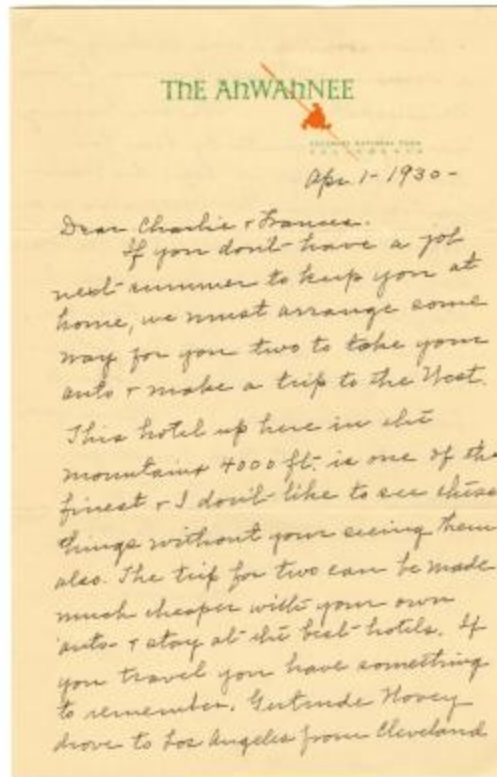 The Ahwahnee
YOSEMITE NATIONAL PARK
CALIFORNIA
Apr 1 - 1930 -
Dear Charlie + Frances.
If you don't have a job
next summer to keep you at
home, we must arrange some
way for you two to take your
auto + make a trip to the West.
This hotel up here in the
mountains 4000 ft. is one of the
finest + I don't like to see these
things without your seeing them
also. The trip for two can be made
much cheaper with your own
auto + stay at the best hotels. If
you travel you have something
to remember. Gertrude Hovey
drove to Los Angeles from Cleveland